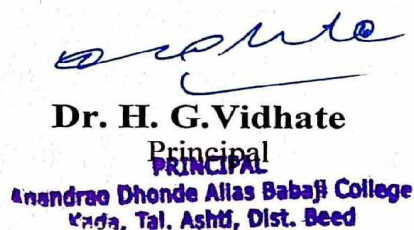 Dr. H. G.Vidhate
Principal
PRINCIPAL
Anandrao Dhonde Alias Babaji College
Kada, Tal. Ashti, Dist. Beed